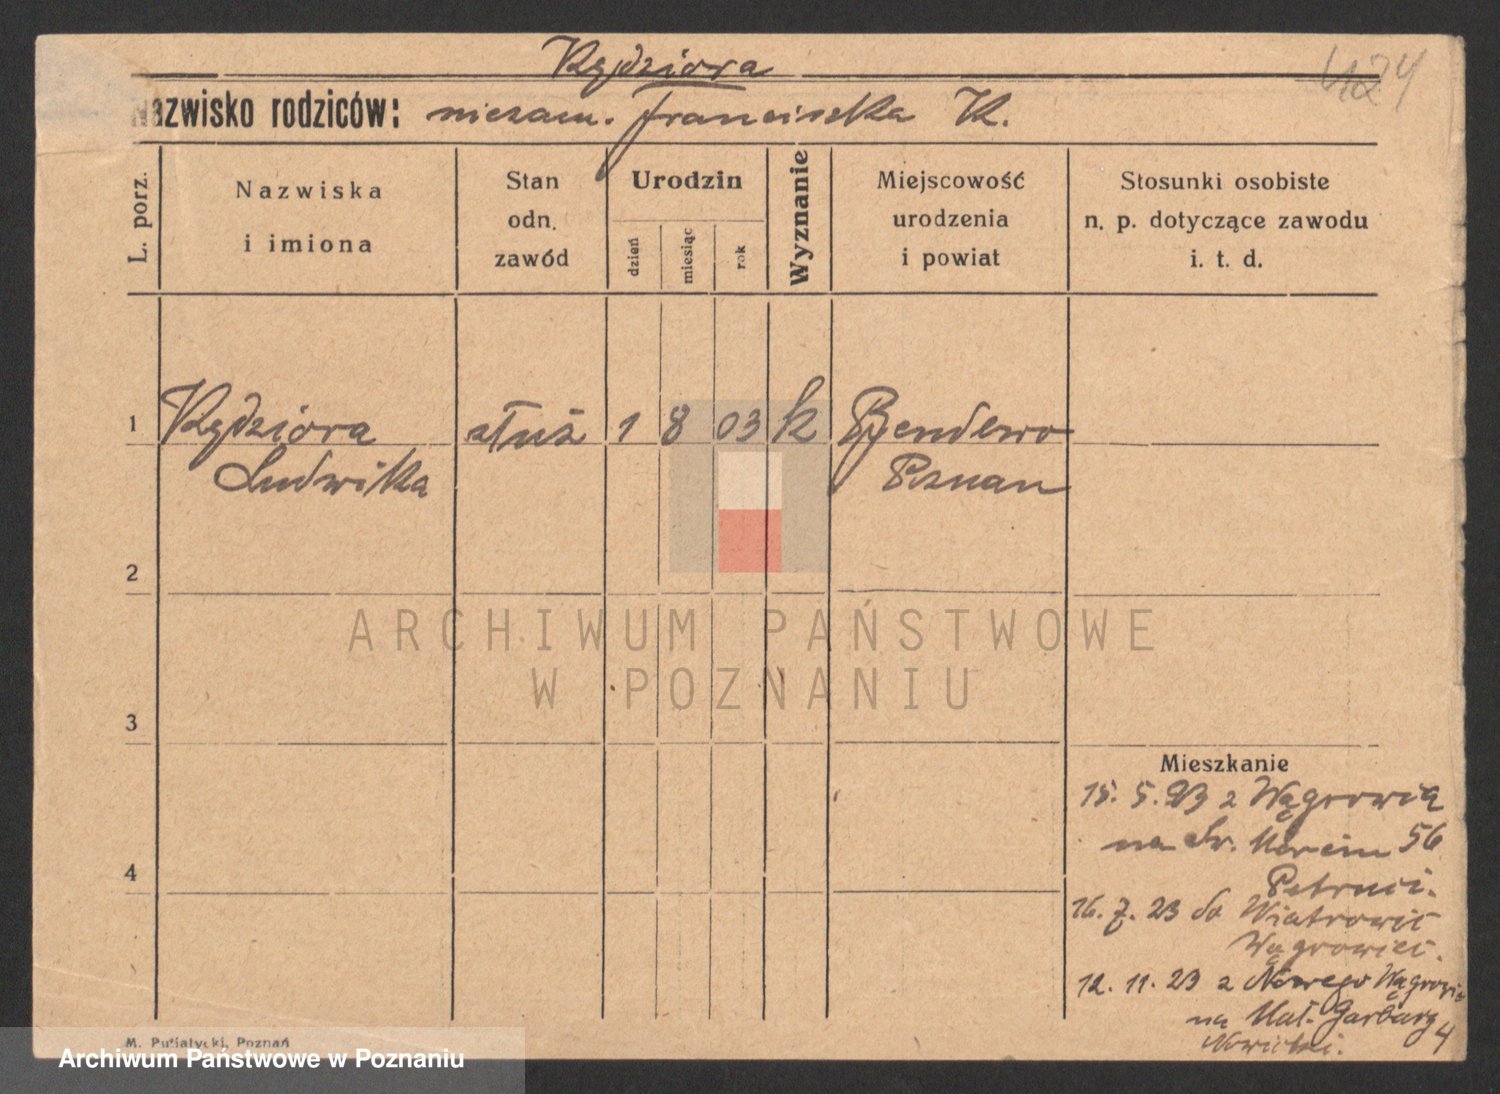 Kędziora
Nazwisko rodziców: niezam. Franciszka K.
L. porz.
Nazwiska
i imiona
Stan
odn.
zawód
Urodzin
dzień
miesiąc
rok
Wyznanie
Miejscowość
urodzenia
i powiat
Stosunki osobiste
n. p. dotyczące zawodu
i. t. d.
1 Kędziora służ 1 8 03 k Bendlewo
Ludwika Poznań
2
3
4
Mieszkanie
15. 5. 23 z Wągrowca
na Św. Marcin 56
16. 7. 23 do Wiatrowic
Wągrowiec.
12. 11. 23 z Nowego
na Mał. Garbary 4
ARCHIWUM PAŃSTWOWE
W POZNANIU
Poznań
Archiwum Państwowe w Poznaniu